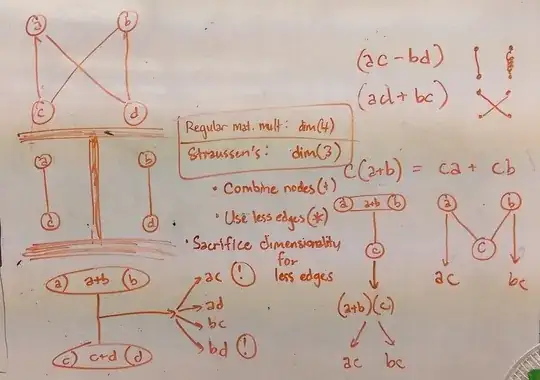 a b
c d
(ac - bd)
(ad + bc)
Regular mat. mult: dim(4)
Straussen's: dim(3)
a b
c d
• Combine nodes (+)
• Use less edges (*)
• Sacrifice dimensionality
for
less edges
a a+b b
c c+d d
ac !
ad
bc
bd !
c(a+b) = ca + cb
a a+b b
c
(a+b)(c)
ac bc
a b
c
ac bc